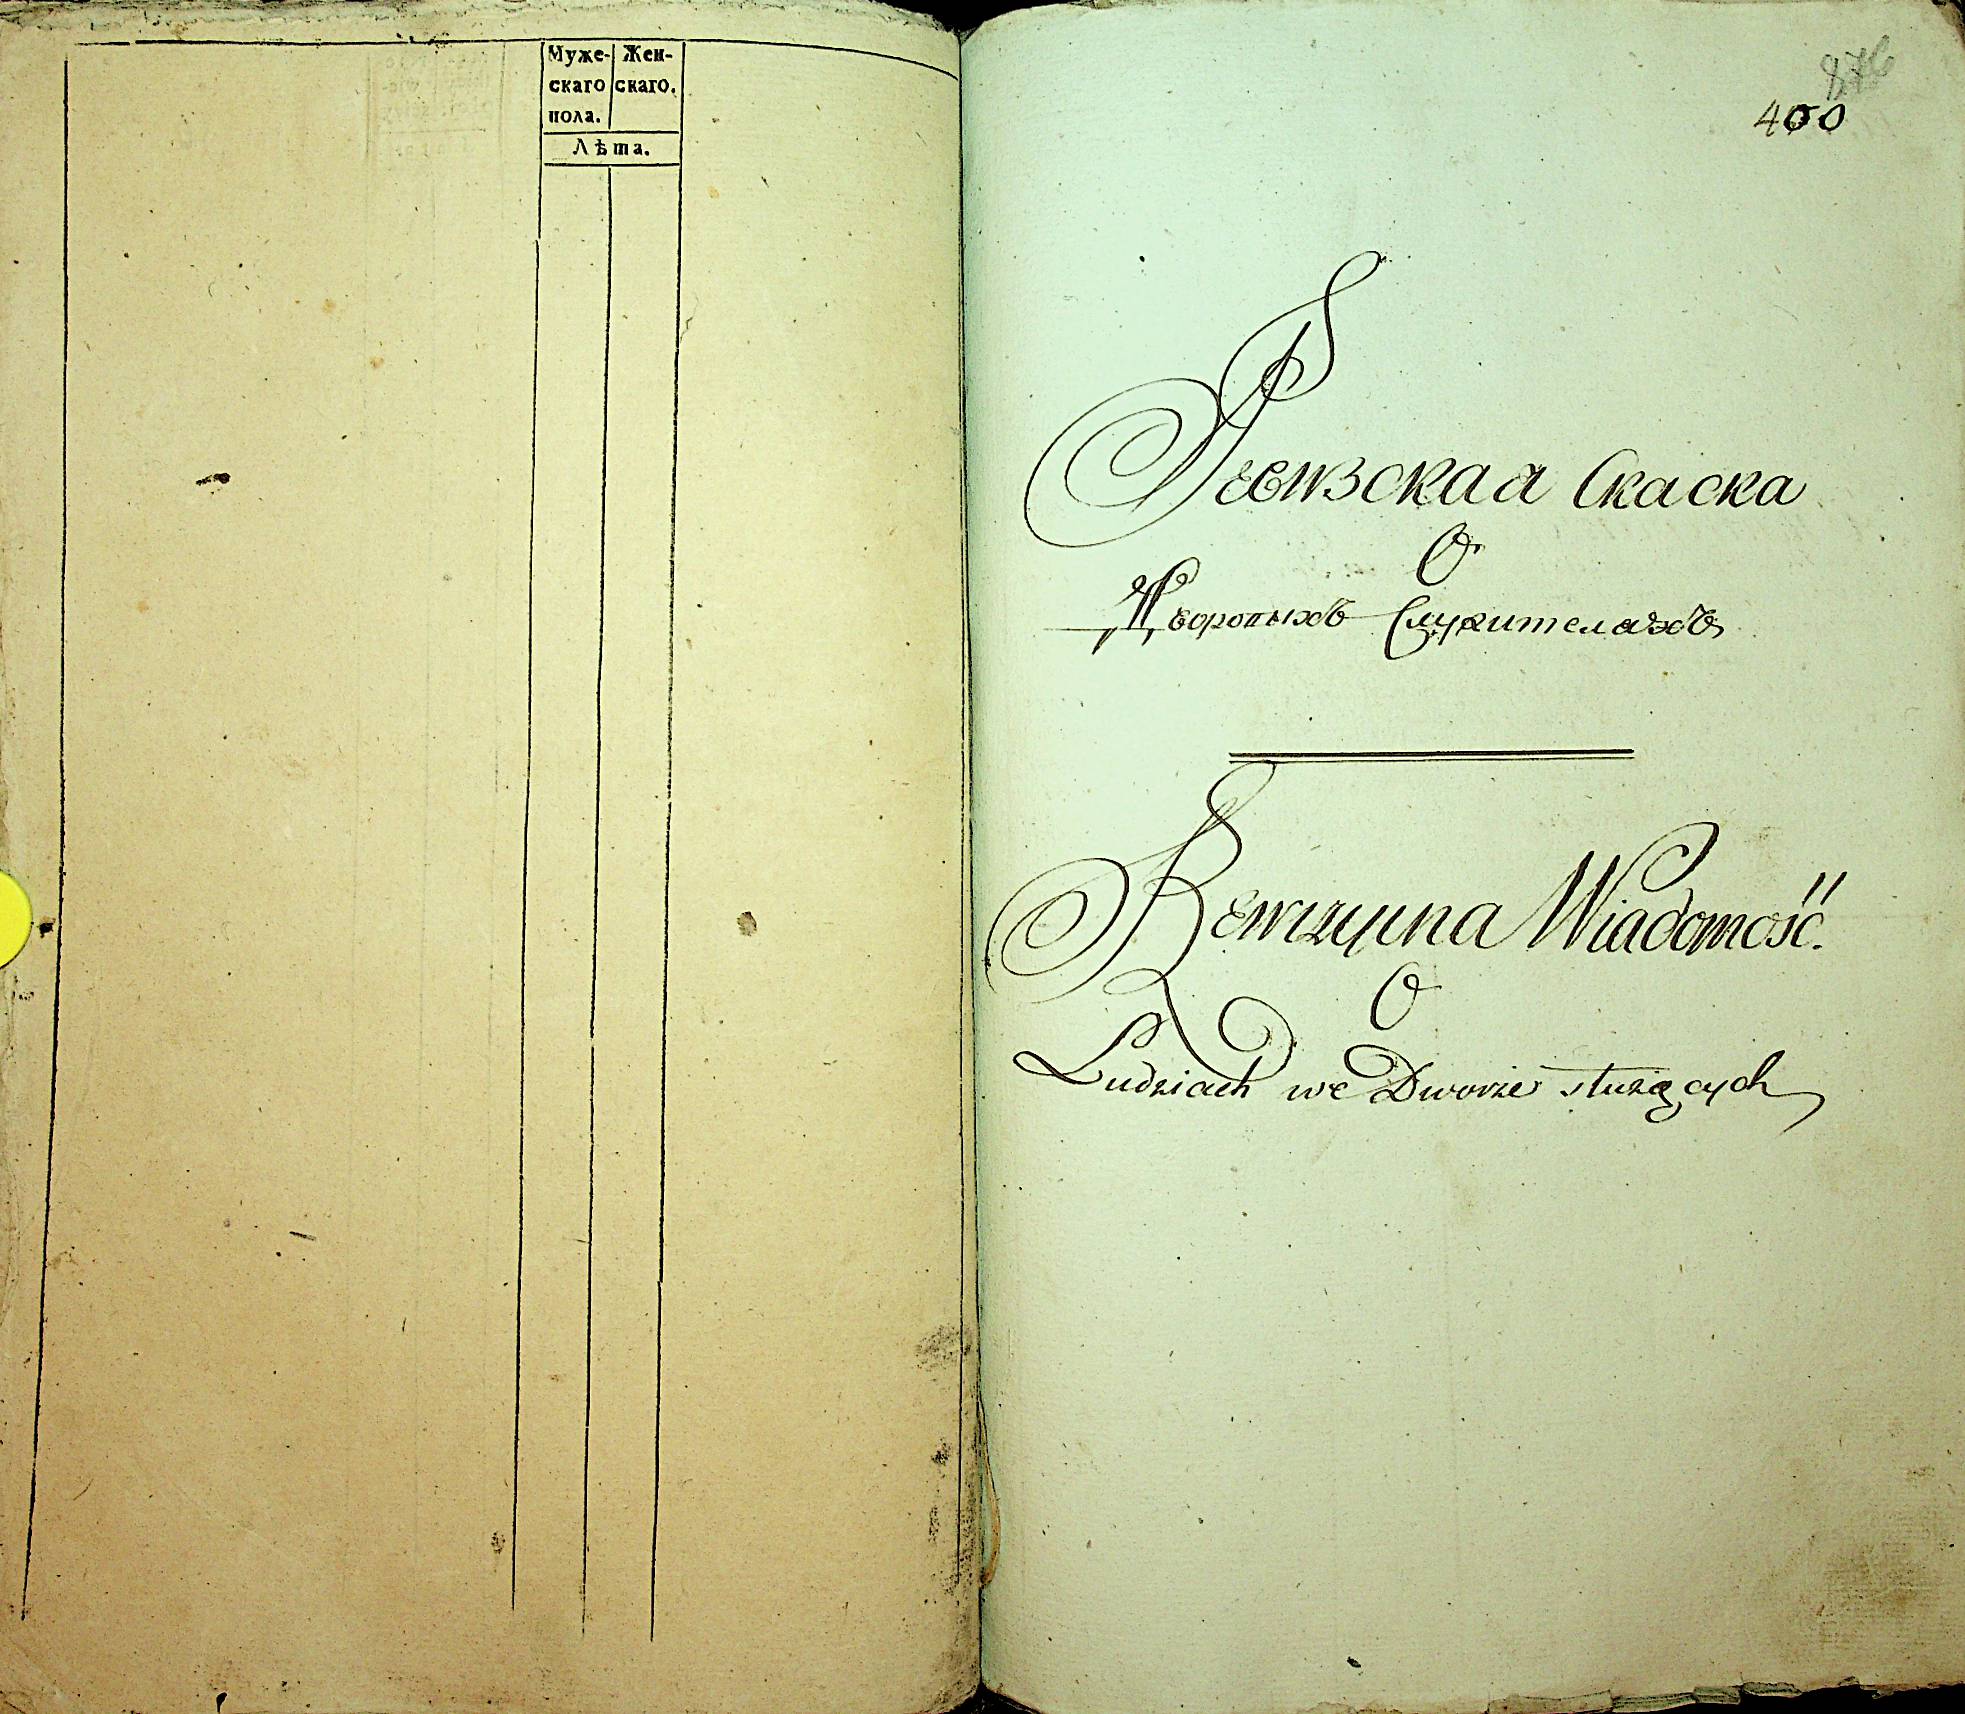 Муже- Жен-
скаго скаго.
пола.
Лѣта.
876
400
Ревизская Скаска
О
Дворовыхъ Служителяхъ
Rewizyina Wiadomość.
O
Ludziach we Dworze służących